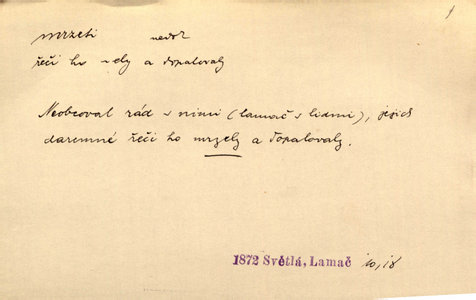 mrzeti nedok
řeči ho ~ely a dopalovaly
Neobcoval rád s nimi (lamač s lidmi), jejich
daremné řeči ho mrzely a dopalovaly.
1872 Světlá, Lamač 10,18